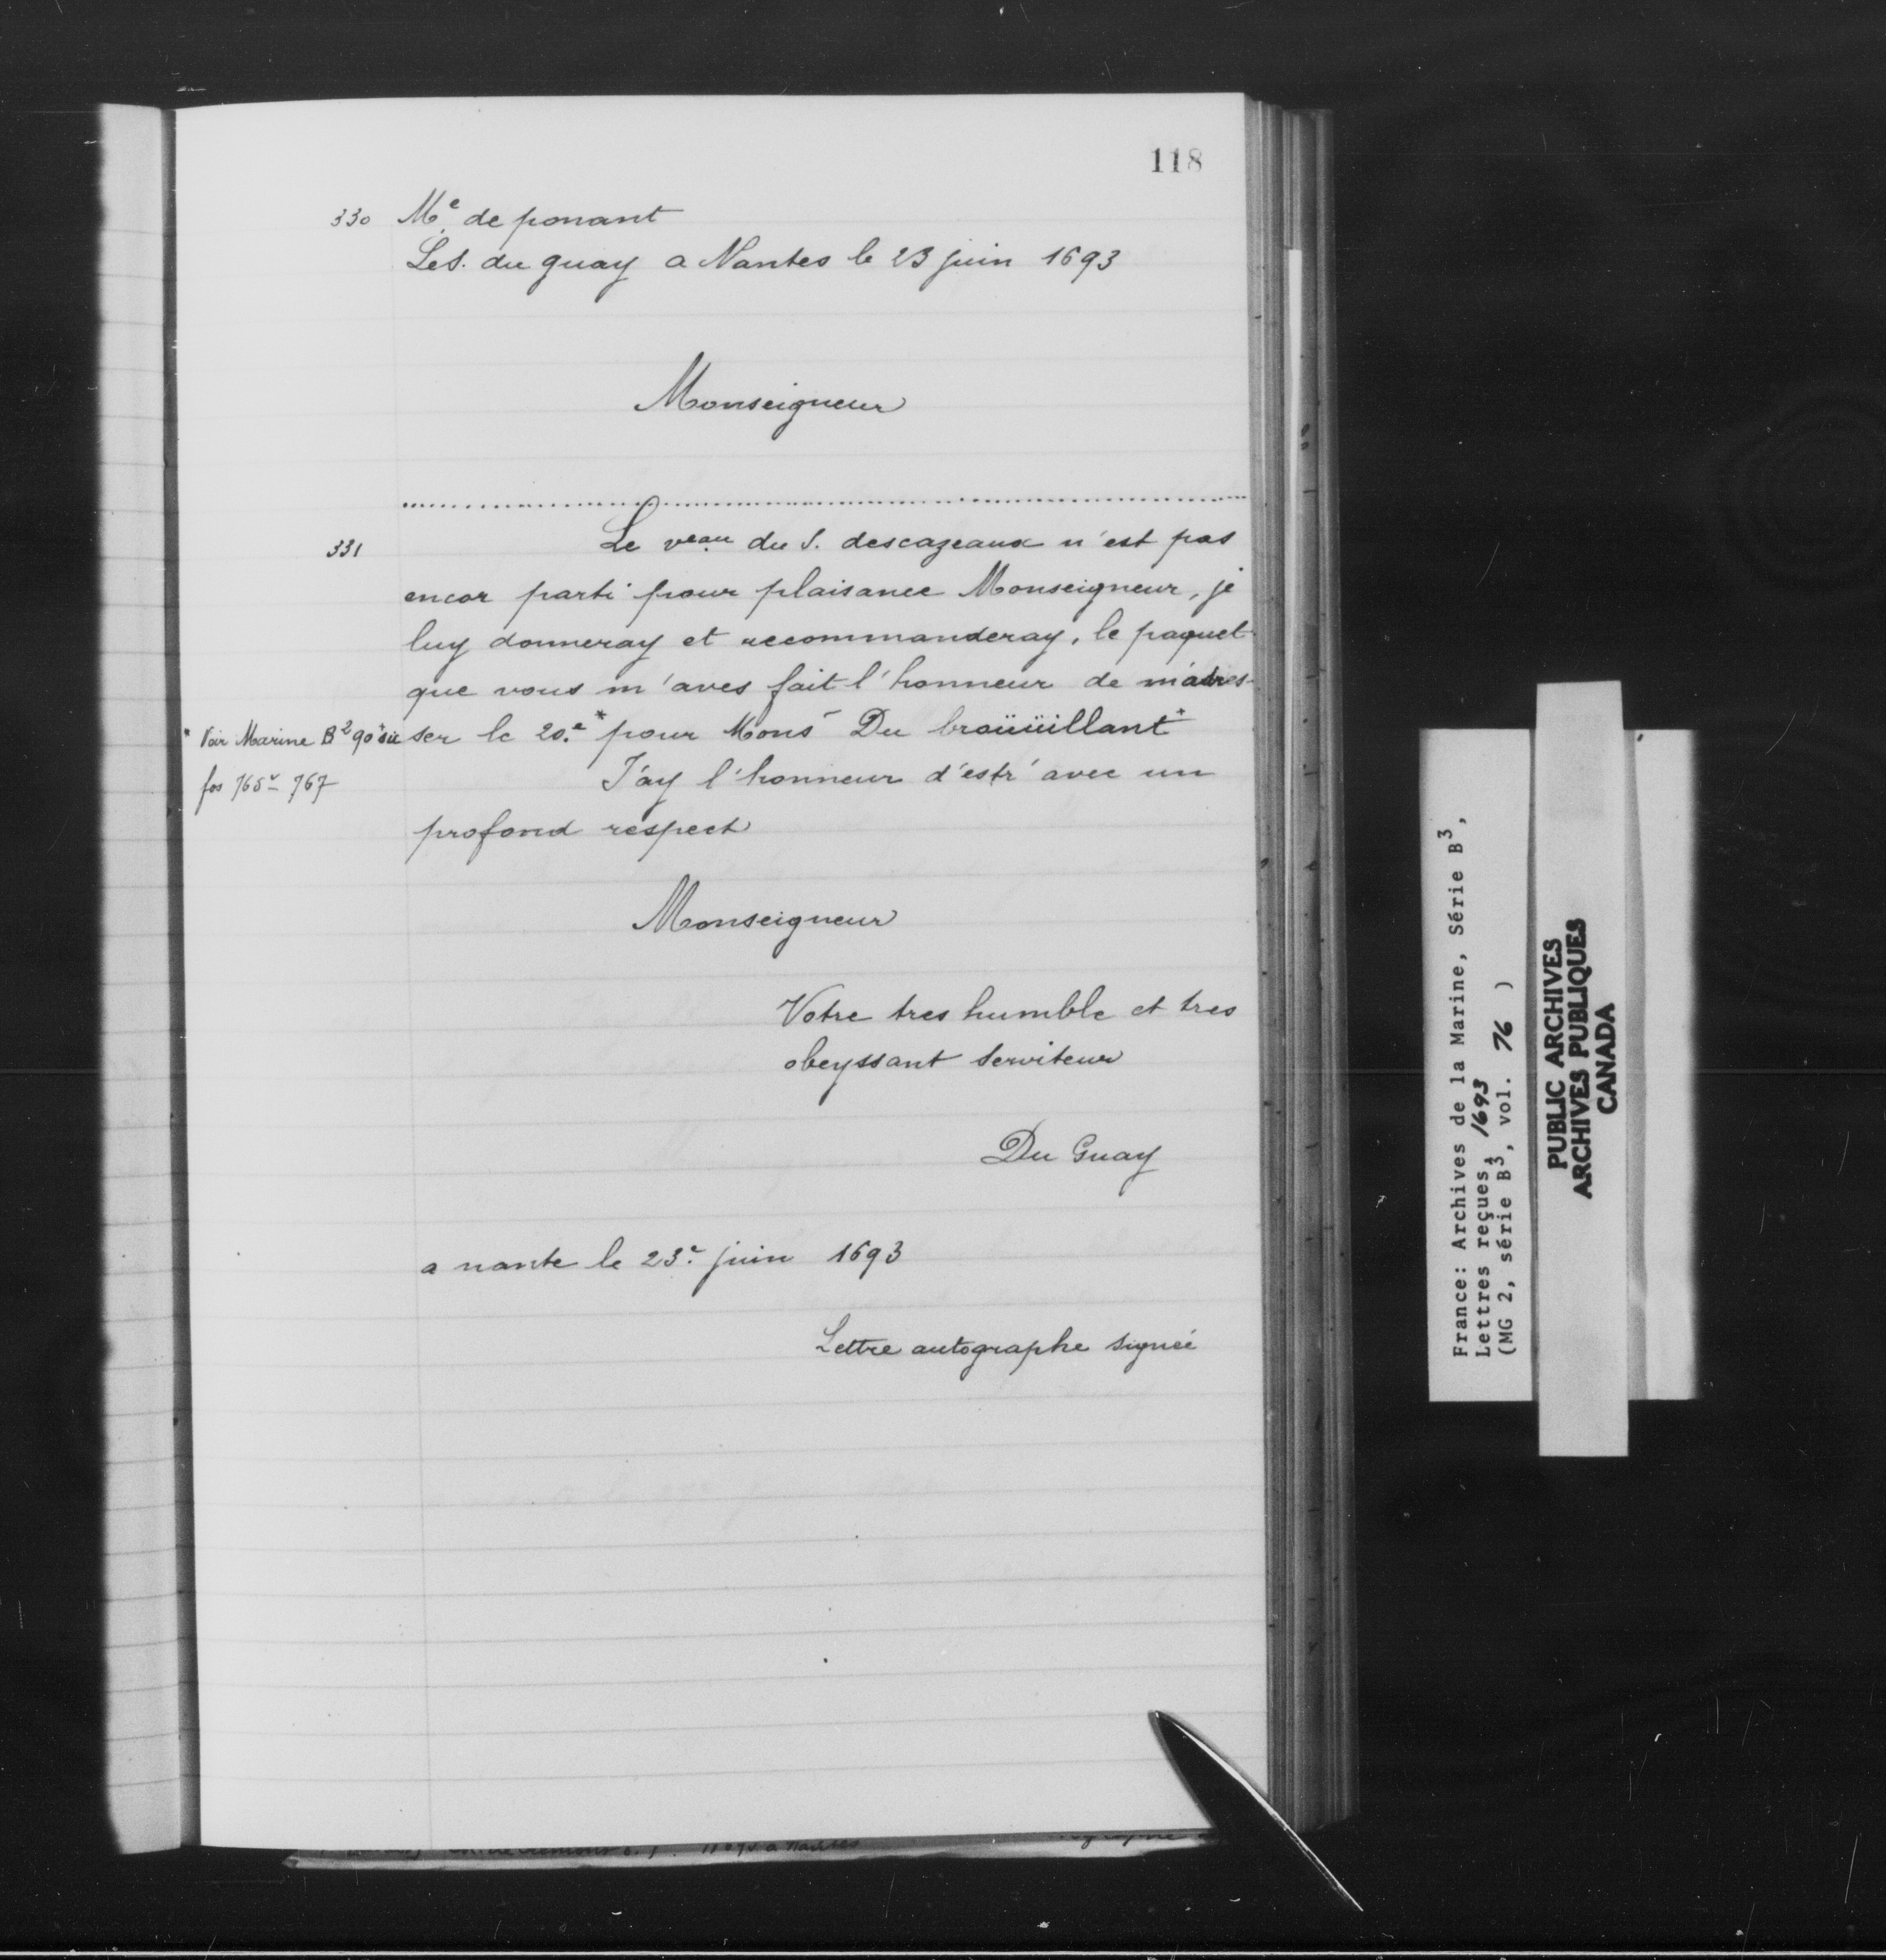 118
330 Mᵉ de ponant
Le S. du guay a Nantes le 23 juin 1693
Monseigneur
331 Le veau du S. descazeaux n'est pas
encor parti pour plaisance Monseigneur, je
luy donneray et recommanderay, le paquet
que vous m'aves fait l'honneur de m'adres-
ser le 20.e * pour Mons Du broüüillant *
* Voir Marine B2 90
fos 765v- 767
J'ay l'honneur d'estr' avec un
profond respect
Monseigneur
Votre tres humble et tres
obeyssant serviteur
Du Guay
a nante le 23e juin 1693
Lettre autographe signée
France: Archives de la Marine, Série B3,
Lettres reçues, 1693
(MG 2, série B3, vol. 76 )
PUBLIC ARCHIVES
ARCHIVES PUBLIQUES
CANADA